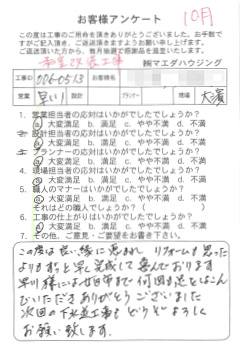 お客様アンケート
10月
この度は工事のご用命を頂きありがとうございました。お手数で
すがご記入頂き、ご返送頂きますようお願い申し上げます。
ご返送頂きましたら、毎月抽選で感謝品を進呈いたします。
㈱マエダハウジング
工事ID 006-0513 お客様名
営業 早川 設計 プランナー 現場 大濱
1. 営業担当者の応対はいかがでしたでしょうか?
a 大変満足 b. 満足 c. やや不満 d. 不満
2. 設計担当者の応対はいかがでしたでしょうか?
a 大変満足 b. 満足 c. やや不満 d. 不満
3. プランナーの応対はいかがでしたでしょうか?
a 大変満足 b. 満足 c. やや不満 d. 不満
4. 現場担当者の応対はいかがでしたでしょうか?
a 大変満足 b. 満足 c. やや不満 d. 不満
5. 職人のマナーはいかがでしたでしょうか?
a 大変満足 b. 満足 c. やや不満 d. 不満
それはどの職人でしょうか( )
6. 工事の仕上がりはいかがでしたでしょうか?
a 大変満足 b. 満足 c. やや不満 d. 不満
7. その他、ご意見・ご要望をお書き下さい。
この度は良い縁に恵まれ リフォームも思った
よりもずっと早く完成して喜んでおります
早川様には廿日市まで何回も足をはこん
でいただきありがとうございました
次回の下水道工事も どうぞよろしく
お願い致します。